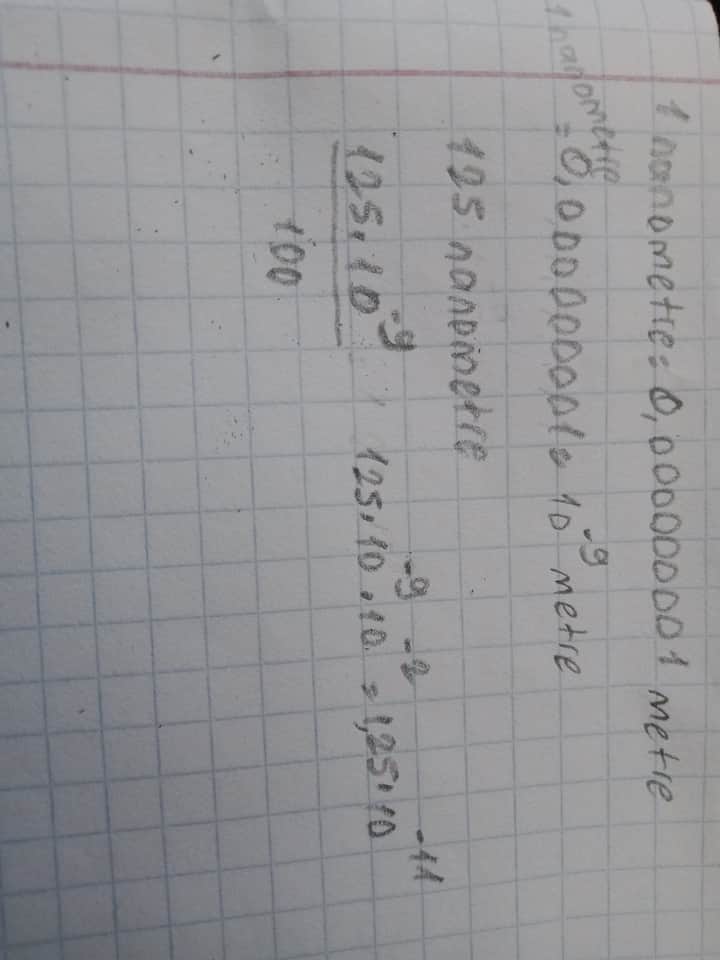 1 nanometre = 0,000000001 metre
1 nanometre
= 0,000000001 = 10⁻⁹ metre
125 nanometre
125.10⁻⁹ , 125.10⁻⁹.10⁻² = 1,25.10⁻¹¹
100